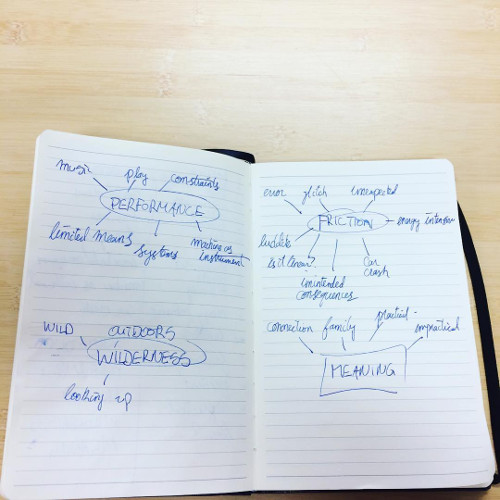 music
play
constraints
PERFORMANCE
limited means
systems
machine as
instrument
WILD
OUTDOORS
WILDERNESS
looking up
error
glitch
unexpected
FRICTION
energy intensive
unintended
consequences
Car
crash
connection
family
practical -
impractical
MEANING